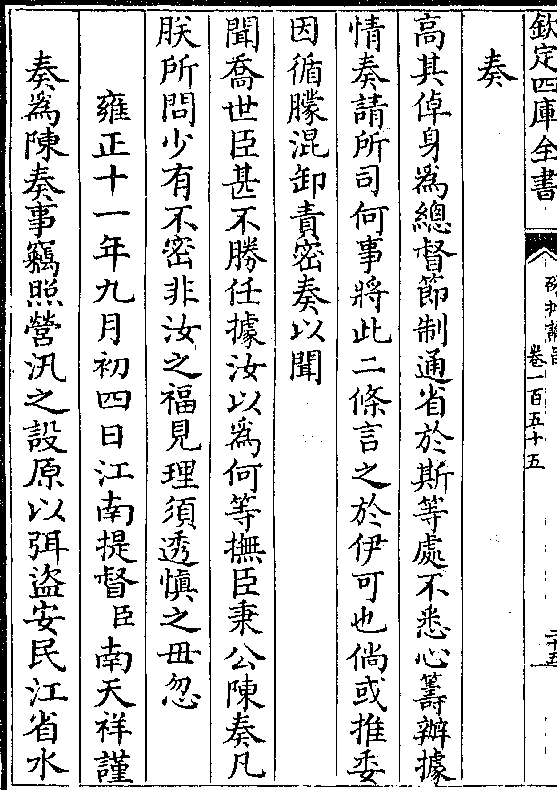 欽定四庫全書
卷一百五十五
奏
高其倬身為總督節制通省於斯等處不悉心籌辦據
情奏請所司何事將此二條言之於伊可也倘或推委
因循朦混卸責密奏以聞
聞喬世臣甚不勝任據汝以為何等撫臣秉公陳奏凡
朕所問少有不密非汝之福見理須透慎之毋忽
雍正十一年九月初四日江南提督臣南天祥謹
奏為陳奏事竊照營汛之設原以弭盜安民江省水